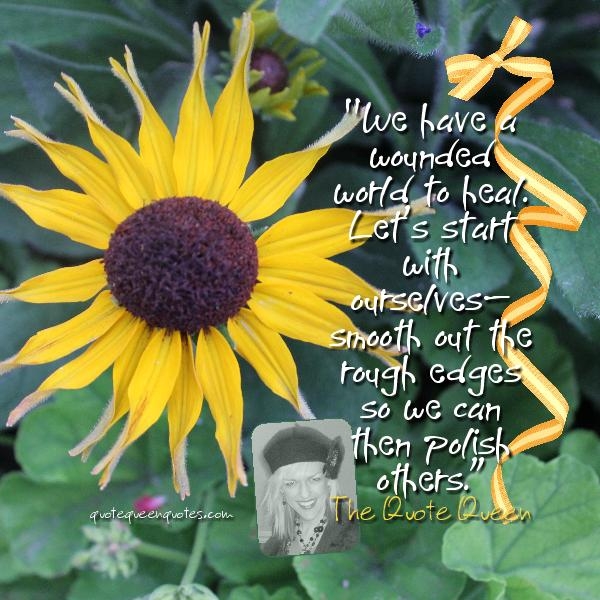 "We have a
wounded
world to heal.
Let's start
with
ourselves—
smooth out the
rough edges
so we can
then polish
others."
The Quote Queen
quotequeenquotes.com